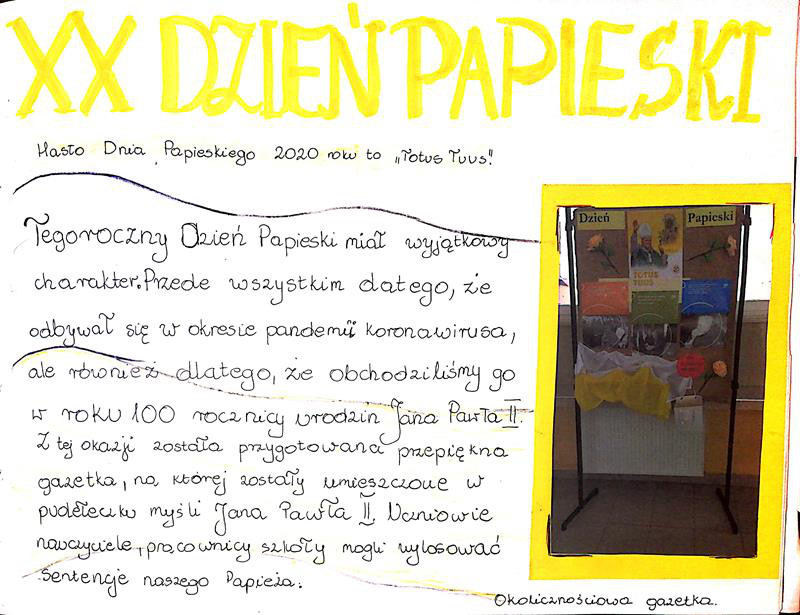 XX DZIEŃ PAPIESKI
Hasło Dnia Papieskiego 2020 roku to „Totus Tuus".
Tegoroczny Dzień Papieski miał wyjątkowy
charakter. Przede wszystkim dlatego, że
odbywał się w okresie pandemii koronawirusa,
ale również dlatego, że obchodziliśmy go
w roku 100 rocznicy urodzin Jana Pawła II.
Z tej okazji została przygotowana przepiękna
gazetka, na której zostały umieszczone w
pudełeczku myśli Jana Pawła II. Uczniowie
nauczyciele, pracownicy szkoły mogli wylosować
sentencje naszego Papieża.
Dzień Papieski
TOTUS
TUUS
Okolicznościowa gazetka.